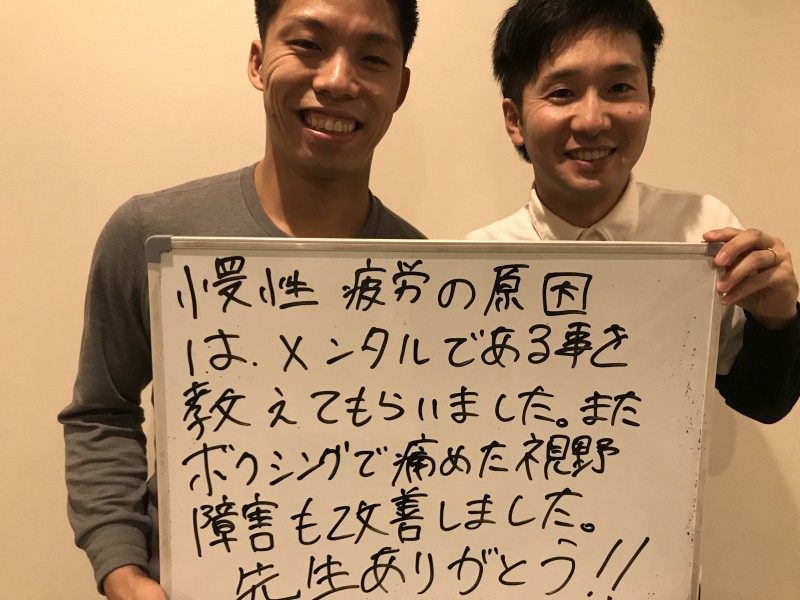 慢性疲労の原因
は、メンタルである事を
教えてもらいました。また
ボクシングで痛めた視野
障害も改善しました。
先生ありがとう!!